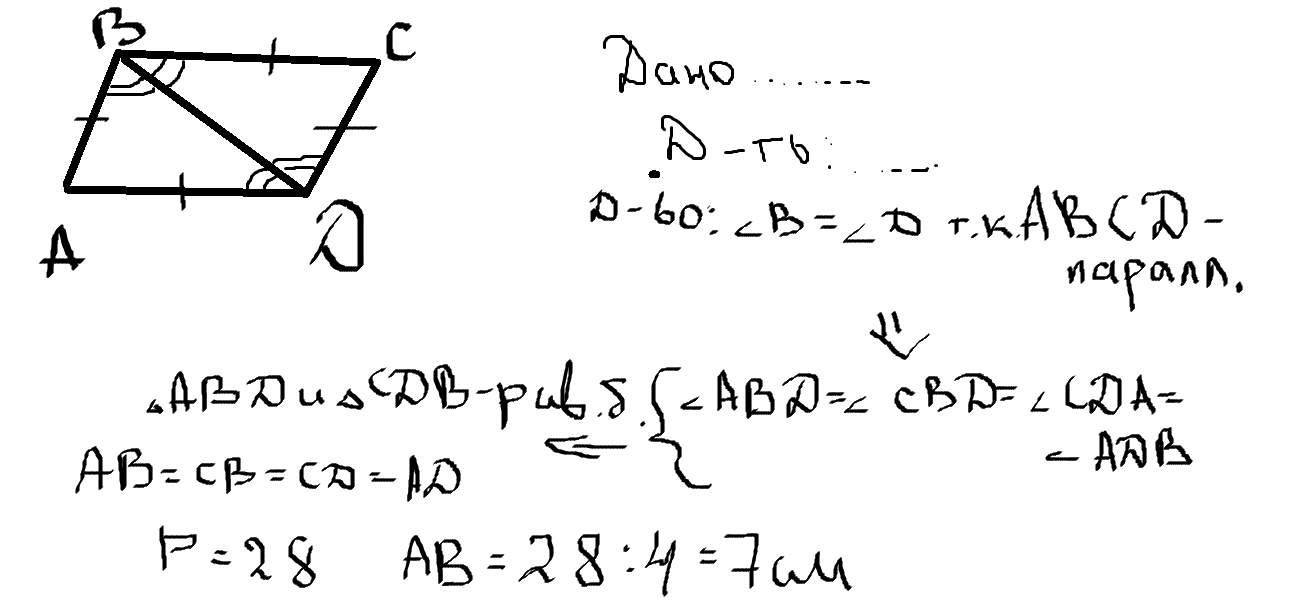 B C
A D
Дано .......
Д-ть: ....
Д-во: ∠B = ∠D т.к. ABCD -
паралл.
△ABD и △CDB - рав. б. { ∠ABD = ∠CBD = ∠CDA =
∠ADB
AB = CB = CD = AD
P = 28 AB = 28 : 4 = 7 см